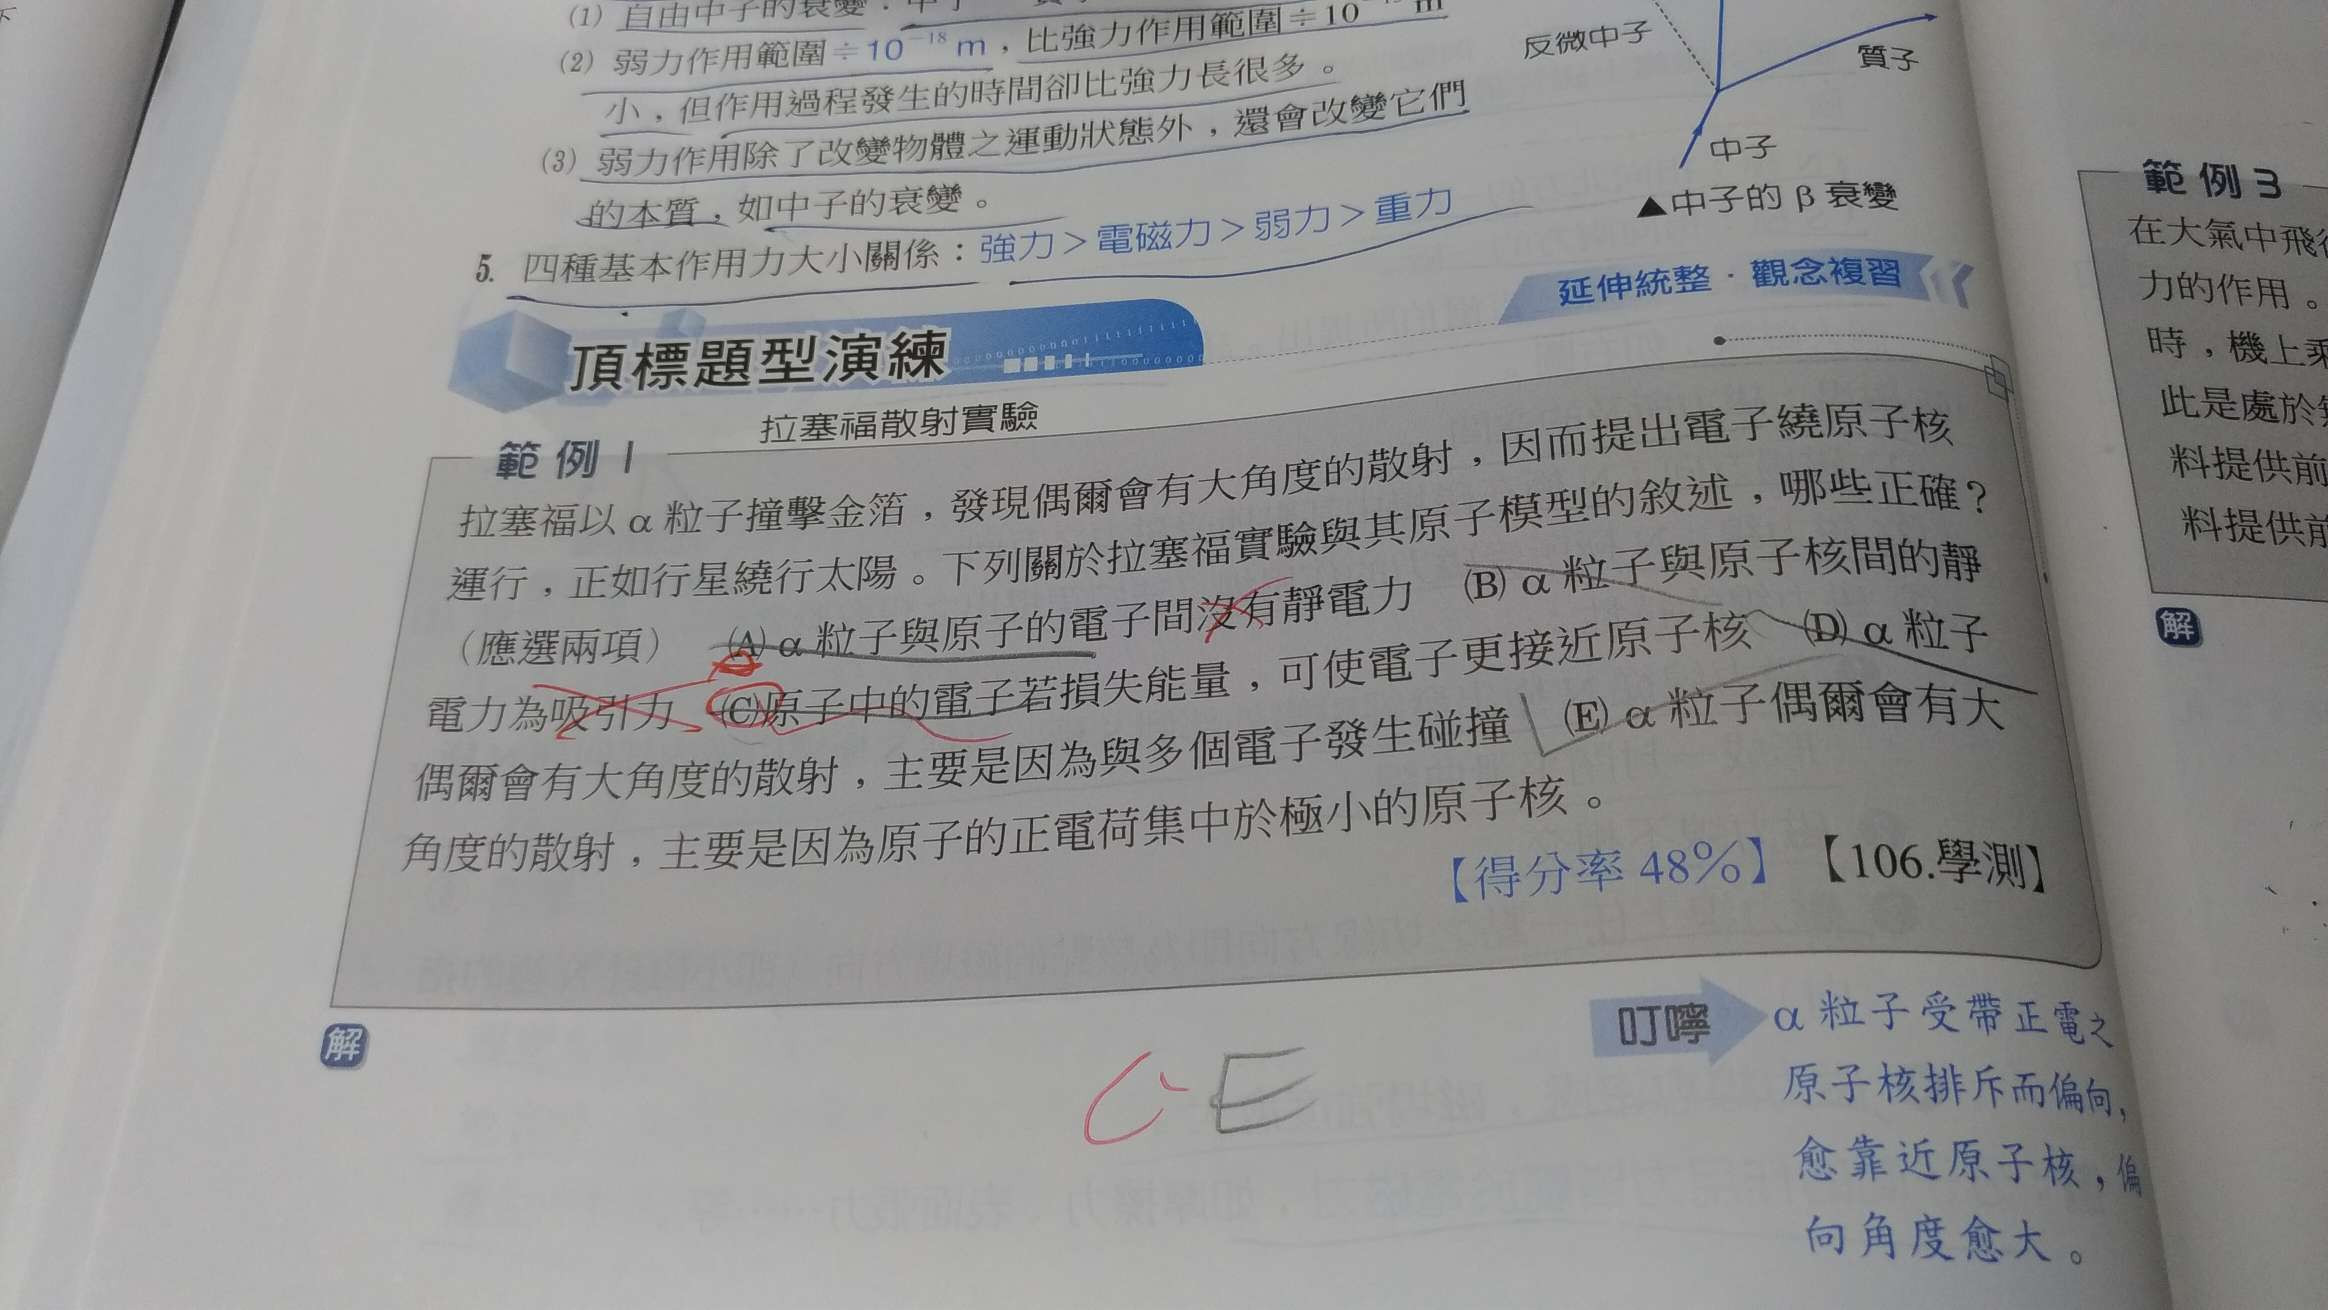 (1) 自由中子的衰變：中子
(2) 弱力作用範圍≑10⁻¹⁸ m，比強力作用範圍≑10 m
小，但作用過程發生的時間卻比強力長很多。
(3) 弱力作用除了改變物體之運動狀態外，還會改變它們
的本質，如中子的衰變。
5. 四種基本作用力大小關係：強力＞電磁力＞弱力＞重力
反微中子
質子
中子
▲中子的 β 衰變
延伸統整．觀念複習
頂標題型演練
範例1 拉塞福散射實驗
拉塞福以 α 粒子撞擊金箔，發現偶爾會有大角度的散射，因而提出電子繞原子核
運行，正如行星繞行太陽。下列關於拉塞福實驗與其原子模型的敘述，哪些正確？
（應選兩項） (A) α 粒子與原子的電子間沒有靜電力 (B) α 粒子與原子核間的靜
電力為吸引力 (C)原子中的電子若損失能量，可使電子更接近原子核 (D) α 粒子
偶爾會有大角度的散射，主要是因為與多個電子發生碰撞 (E) α 粒子偶爾會有大
角度的散射，主要是因為原子的正電荷集中於極小的原子核。
【得分率 48%】【106.學測】
解
CE
叮嚀
α 粒子受帶正電之
原子核排斥而偏向，
愈靠近原子核，偏
向角度愈大。
範例3
在大氣中飛
力的作用。
時，機上乘
此是處於
料提供前
料提供前
解